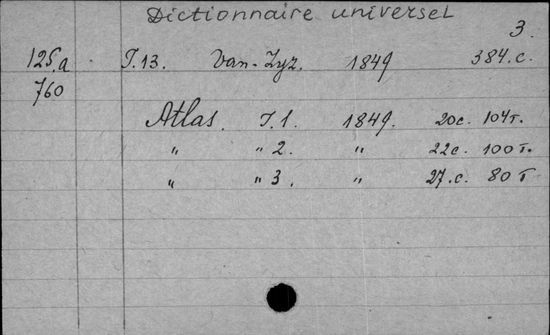 Dictionnaire universel
3.
125.a T.13. Van-Zyz. 1849 384.c.
760
Atlas. T.1. 1849. 20c. 104т.
" " 2. " 22c. 100т.
" " 3. " 27.c. 80т